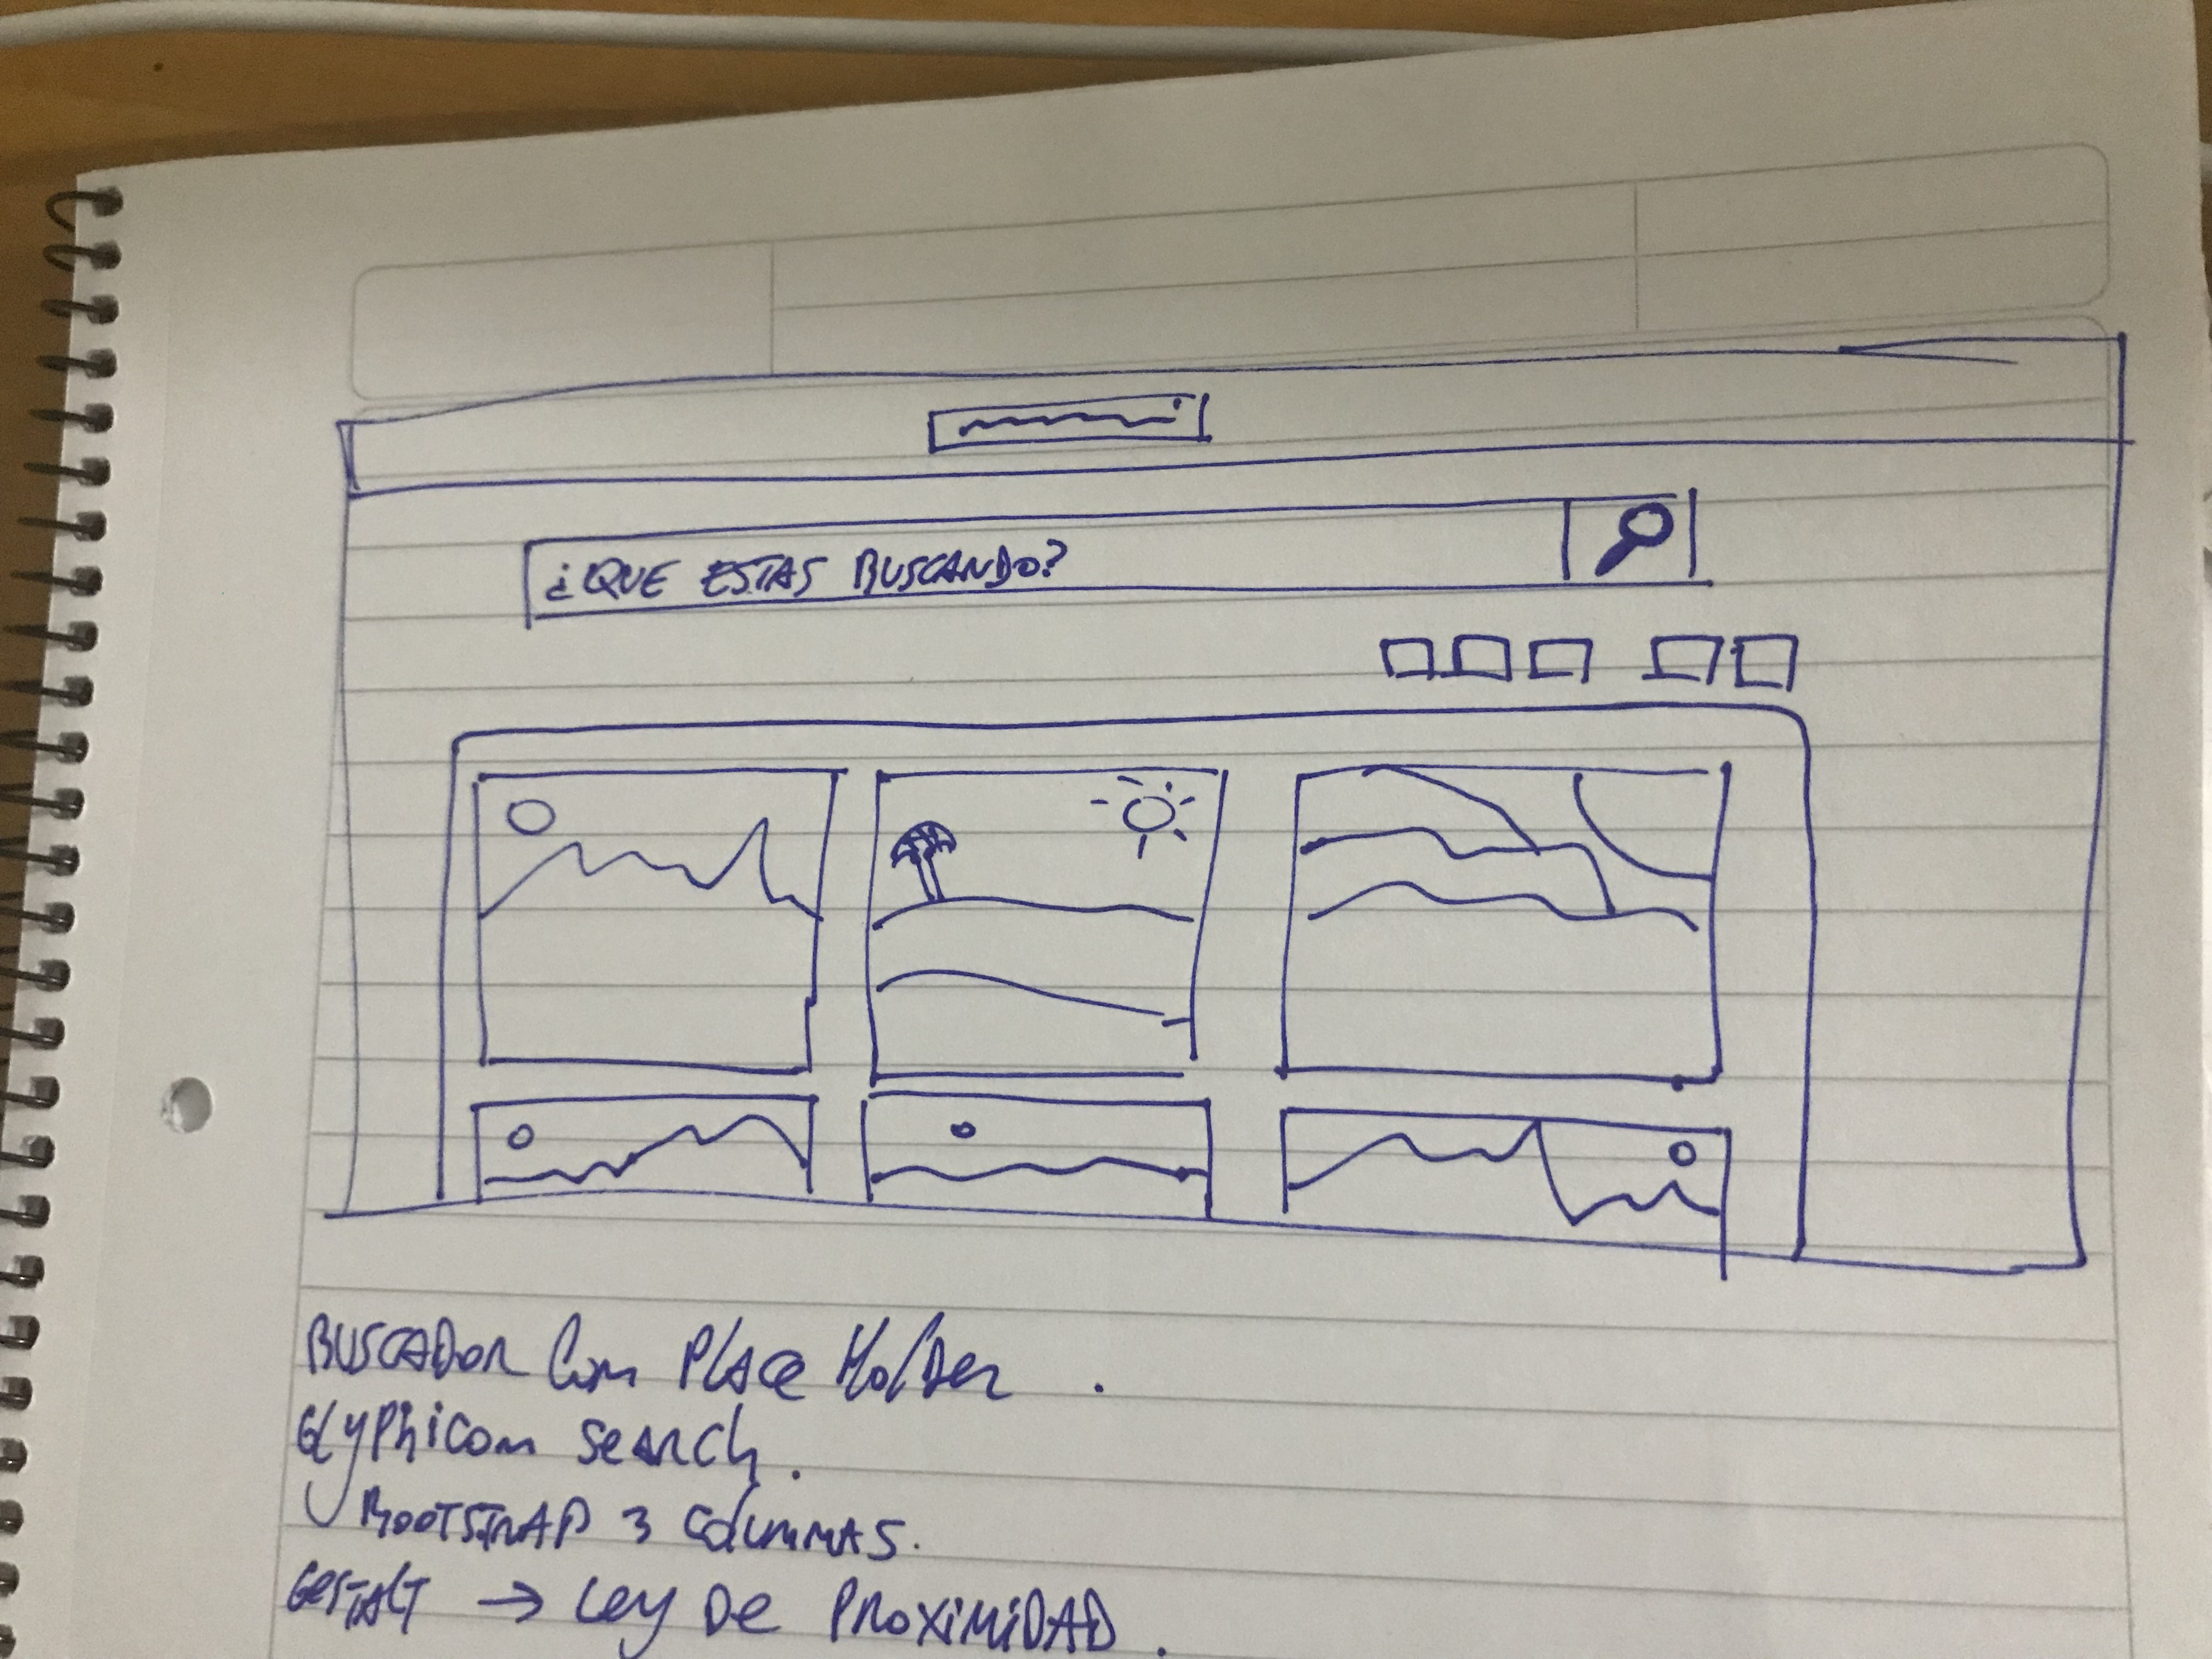 ¿QUE ESTAS BUSCANDO?
BUSCADOR Com Place Holder .
Glyphicom search.
BOOTSTRAP 3 columnas.
GESTALT → Ley De PROXIMIDAD .